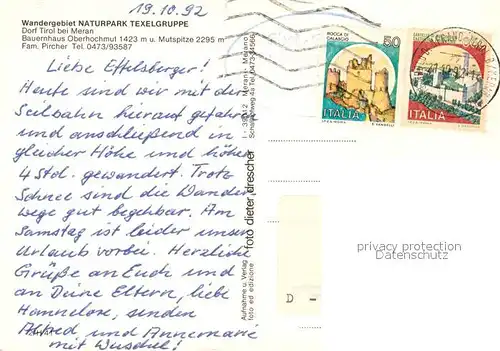 19.10.92
Wandergebiet NATURPARK TEXELGRUPPE
Dorf Tirol bei Meran
Bauernhaus Oberhochmut 1423 m u. Mutspitze 2295 m
Fam. Pircher Tel. 0473/93587
Liebe Effelsberger!
Heute sind wir mit der
Seilbahn hierauf gefahren
und anschließend in
gleicher Höhe und höher
4 Std. gewandert. Trotz
Schnee sind die Wander
wege gut begehbar. Am
Samstag ist leider unser
Urlaub vorbei. Herzliche
Grüße an Euch und
an Deine Eltern, liebe
Hannelore, senden
Alfred und Annemarie
mit Wuschel!
Aufnahme u. Verlag
foto ed edizione
foto dieter drescher
Meran - Merano
ROCCA DI
CALASCIO
50
ITALIA
ITALIA
D -
privacy protection
watermark